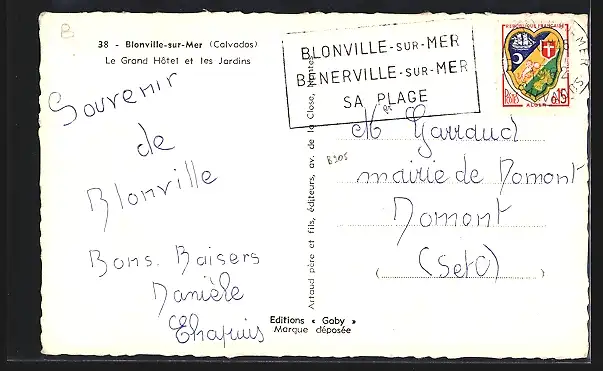 B
38 - Blonville-sur-Mer (Calvados)
Le Grand Hôtel et les Jardins
Souvenir
de
Blonville
Bons Baisers
Danièle
Chapuis
Artaud père et fils, éditeurs, av. de la Close, Nantes
Editions « Gaby »
Marque déposée
BLONVILLE-SUR-MER
BENERVILLE-SUR-MER
SA PLAGE
REPUBLIQUE FRANÇAISE
POSTES 0,15
ALGER
M Garraud
mairie de Domont
Domont
(SetO)